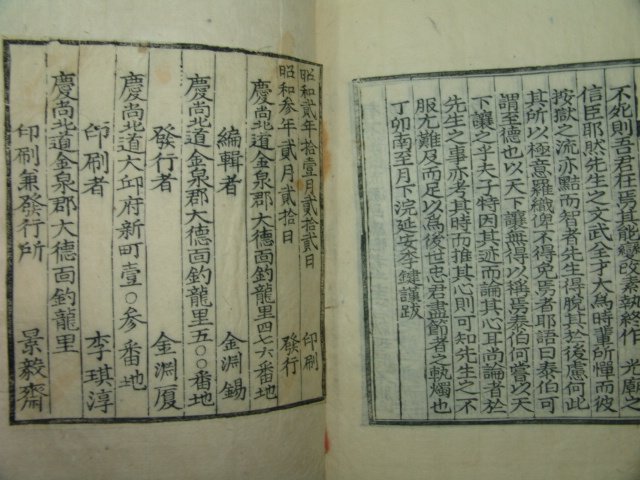 不死則吾君在焉其能變改素執終作 光廢之
信臣耶然先生之文武全才大爲時輩所憚而彼
按獄之流亦黠而智者先生得脫其於後慮何此
其所以極意羅織俾不得免焉者耶語曰泰伯可
謂至德也以天下讓無得以稱焉泰伯何嘗以天
下讓之乎夫子特因其迹而論其心耳尚論者於
先生之事亦考其時而推其心則可知先生之不
服尤難及而足以爲後世忠君盡節者之執燭也
丁卯南至月下浣延安李鍵謹跋
昭和貳年拾壹月貳拾貳日 印刷
昭和參年貳月貳拾日 發行
慶尚北道金泉郡大德面釣龍里四七六番地
編輯者 金淵錫
慶尚北道金泉郡大德面釣龍里五〇〇番地
發行者 金淵廈
慶尚北道大邱府新町壹〇參番地
印刷者 李琪淳
慶尚北道金泉郡大德面釣龍里
印刷兼發行所 景毅齋